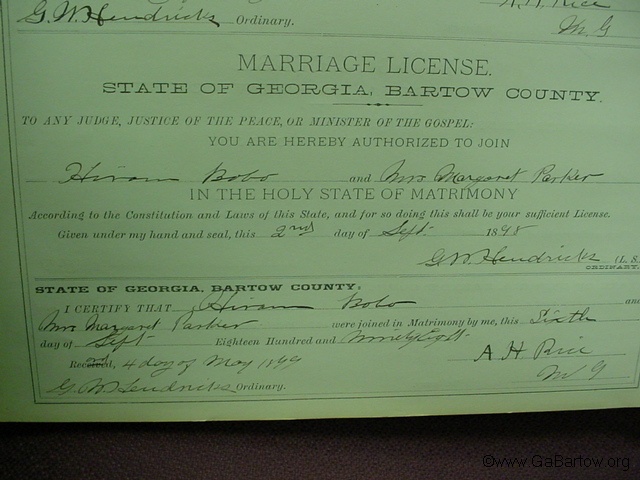 A. H. Rice
G. W. Hendricks Ordinary. M. G
MARRIAGE LICENSE.
STATE OF GEORGIA, BARTOW COUNTY.
TO ANY JUDGE, JUSTICE OF THE PEACE, OR MINISTER OF THE GOSPEL:
YOU ARE HEREBY AUTHORIZED TO JOIN
Hiram Bobo and Mrs Margaret Parker
IN THE HOLY STATE OF MATRIMONY
According to the Constitution and Laws of this State, and for so doing this shall be your sufficient License.
Given under my hand and seal, this 2nd day of Sept. 1898
G. W. Hendricks (L. S.
ORDINARY.
STATE OF GEORGIA, BARTOW COUNTY:
I CERTIFY THAT Hiram Bobo and
Mrs Margaret Parker were joined in Matrimony by me, this Sixth
day of Sept Eighteen Hundred and Ninety Eight.
A H Rice
Recorded, 4 day of May 1899 M G
G. W. Hendricks Ordinary.
©www.GaBartow.org